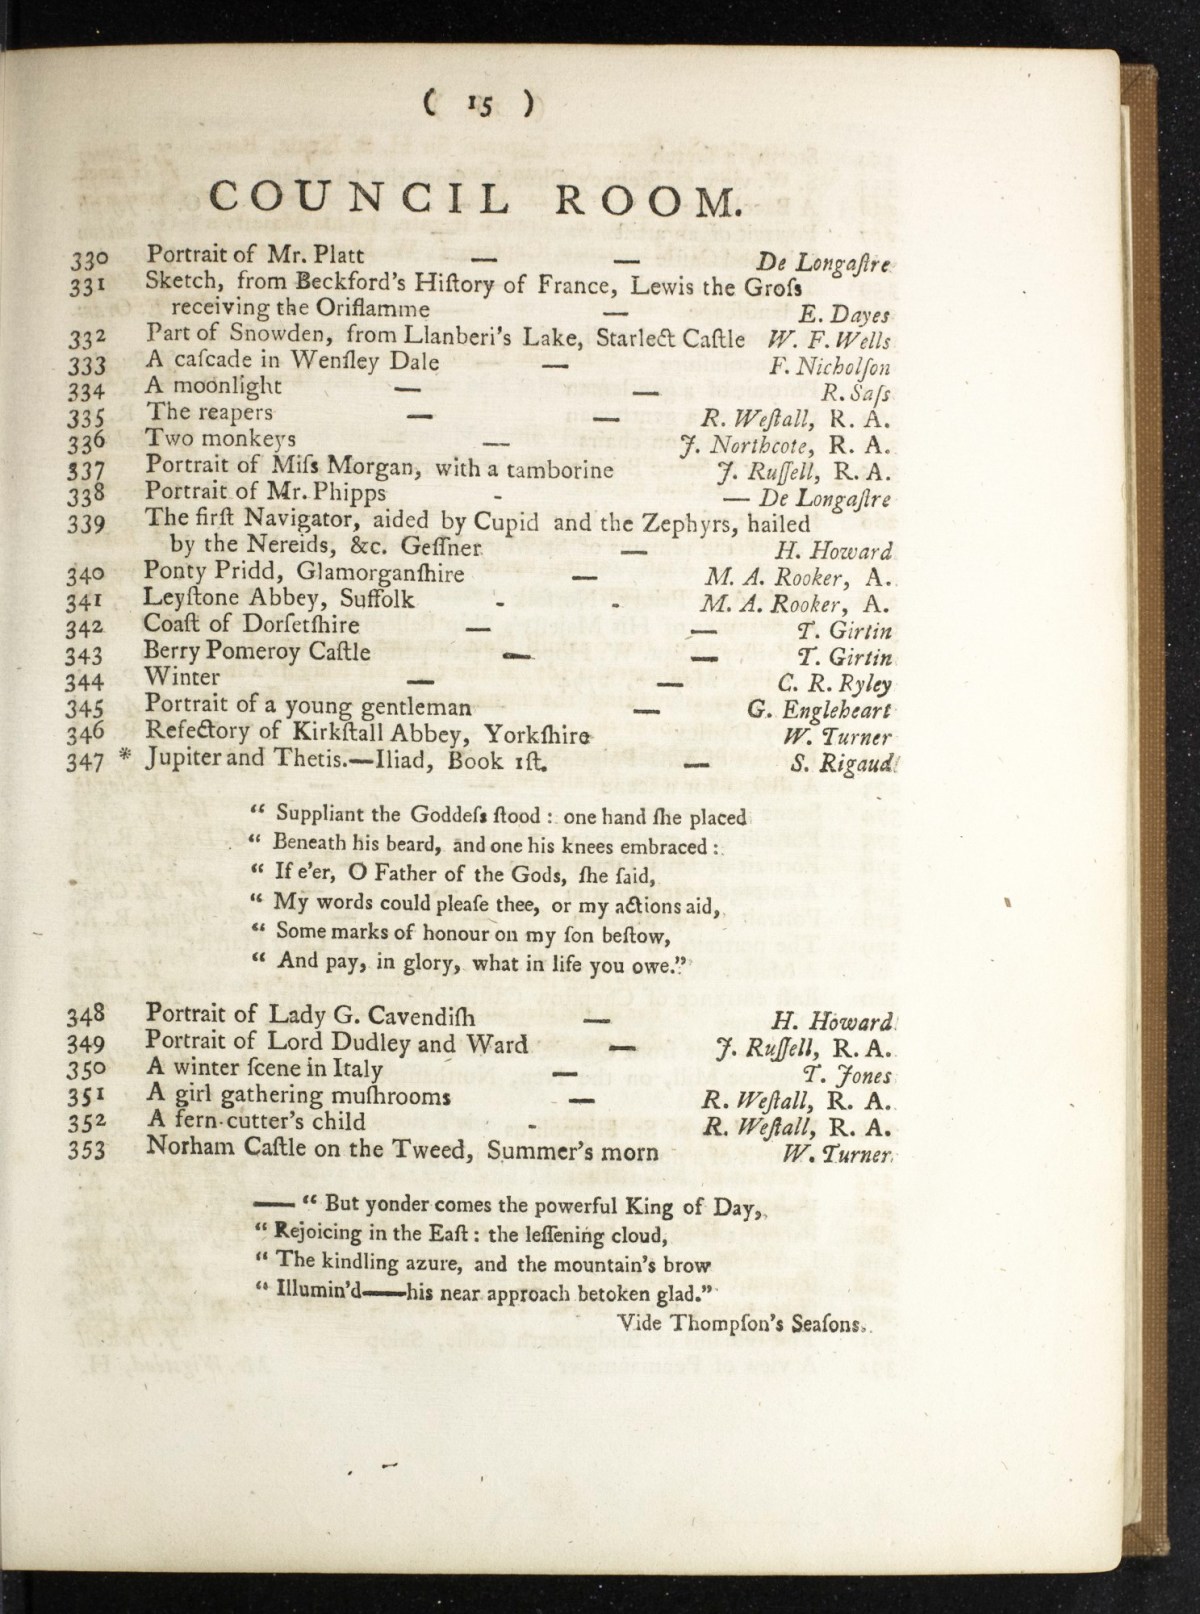 ( 15 )
COUNCIL ROOM.
330 Portrait of Mr. Platt — — De Longaſtre
331 Sketch, from Beckford's Hiſtory of France, Lewis the Groſs
receiving the Oriflamme — E. Dayes
332 Part of Snowden, from Llanberi's Lake, Starlect Caſtle W. F. Wells
333 A caſcade in Wenſley Dale — F. Nicholſon
334 A moonlight — — R. Saſs
335 The reapers — — R. Weſtall, R. A.
336 Two monkeys — J. Northcote, R. A.
337 Portrait of Miſs Morgan, with a tamborine J. Ruſſell, R. A.
338 Portrait of Mr. Phipps - — De Longaſtre
339 The firſt Navigator, aided by Cupid and the Zephyrs, hailed
by the Nereids, &c. Geſſner — H. Howard
340 Ponty Pridd, Glamorganſhire — M. A. Rooker, A.
341 Leyſtone Abbey, Suffolk - - M. A. Rooker, A.
342 Coaſt of Dorſetſhire — — T. Girtin
343 Berry Pomeroy Caſtle — — T. Girtin
344 Winter — — C. R. Ryley
345 Portrait of a young gentleman — G. Engleheart
346 Refectory of Kirkſtall Abbey, Yorkſhire W. Turner
347 * Jupiter and Thetis.—Iliad, Book 1ſt. — S. Rigaud
“ Suppliant the Goddeſs ſtood : one hand ſhe placed
“ Beneath his beard, and one his knees embraced :
“ If e'er, O Father of the Gods, ſhe ſaid,
“ My words could pleaſe thee, or my actions aid,
“ Some marks of honour on my ſon beſtow,
“ And pay, in glory, what in life you owe.”
348 Portrait of Lady G. Cavendiſh — H. Howard
349 Portrait of Lord Dudley and Ward — J. Ruſſell, R. A.
350 A winter ſcene in Italy — T. Jones
351 A girl gathering muſhrooms — R. Weſtall, R. A.
352 A fern-cutter's child - R. Weſtall, R. A.
353 Norham Caſtle on the Tweed, Summer's morn W. Turner
—— “ But yonder comes the powerful King of Day,
“ Rejoicing in the Eaſt : the leſſening cloud,
“ The kindling azure, and the mountain's brow
“ Illumin'd——his near approach betoken glad.”
Vide Thompſon's Seaſons.